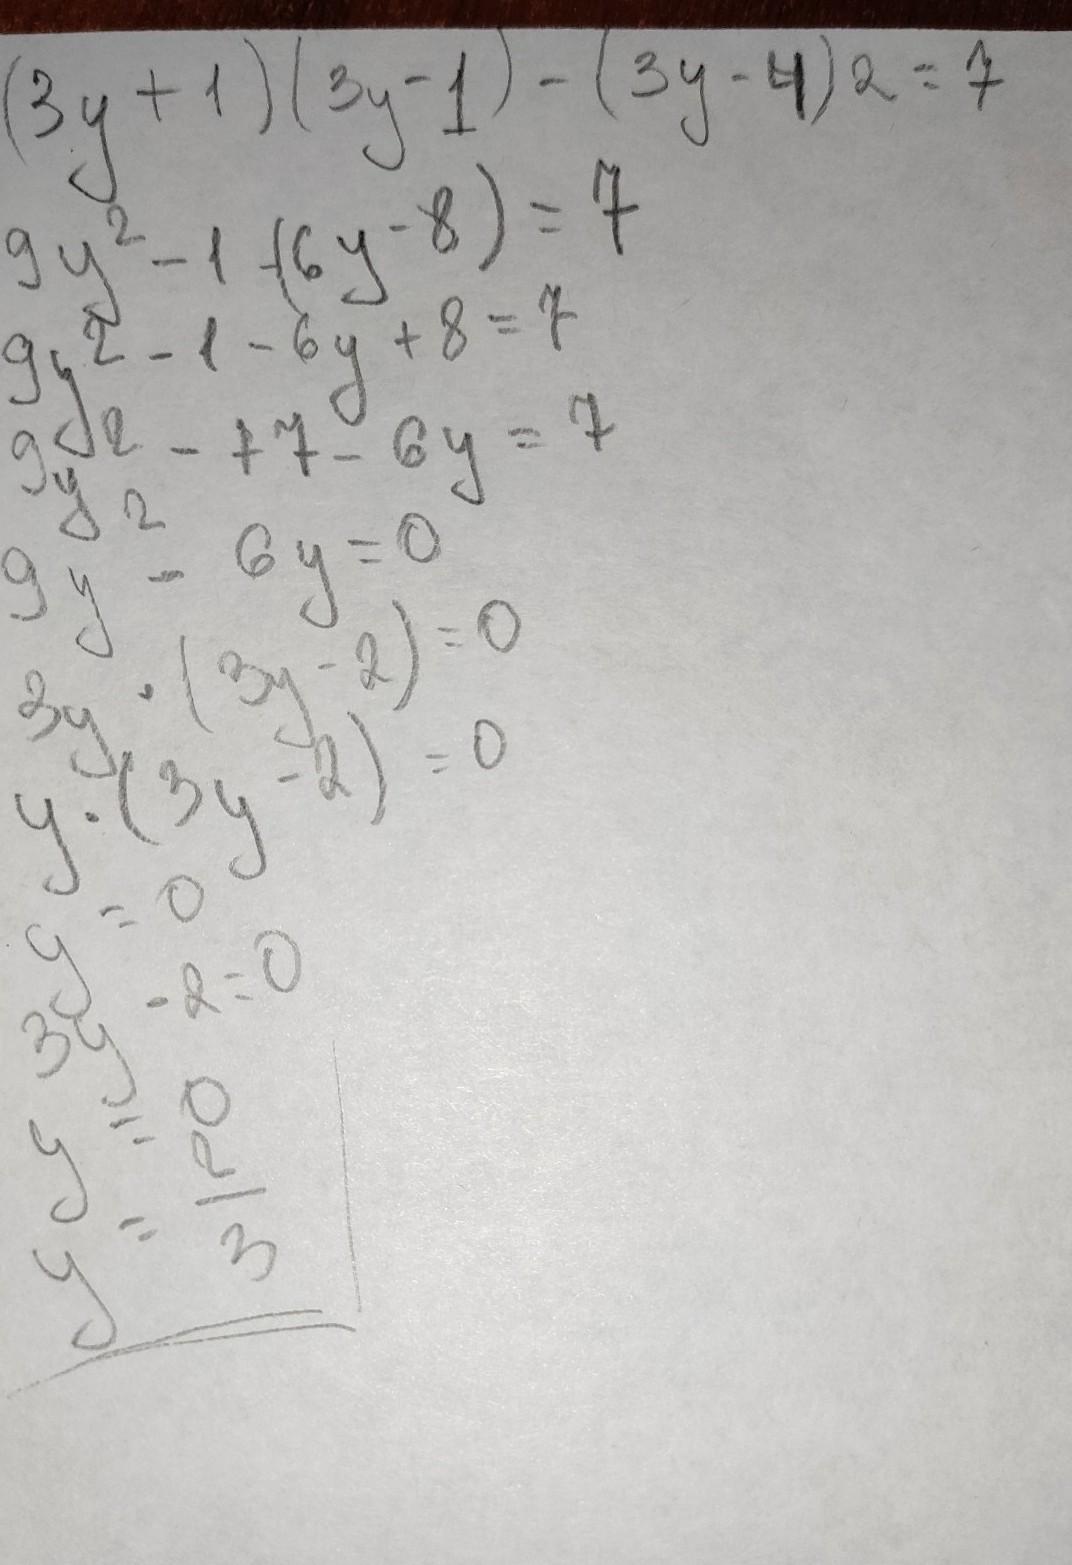 (3y+1)(3y-1)-(3y-4)2=7
9y²-1-(6y-8)=7
9y²-1-6y+8=7
9y²-+7-6y=7
9y²-6y=0
3y·(3y-2)=0
y·(3y-2)=0
y=0
3y-2=0
y=0
y=2/3